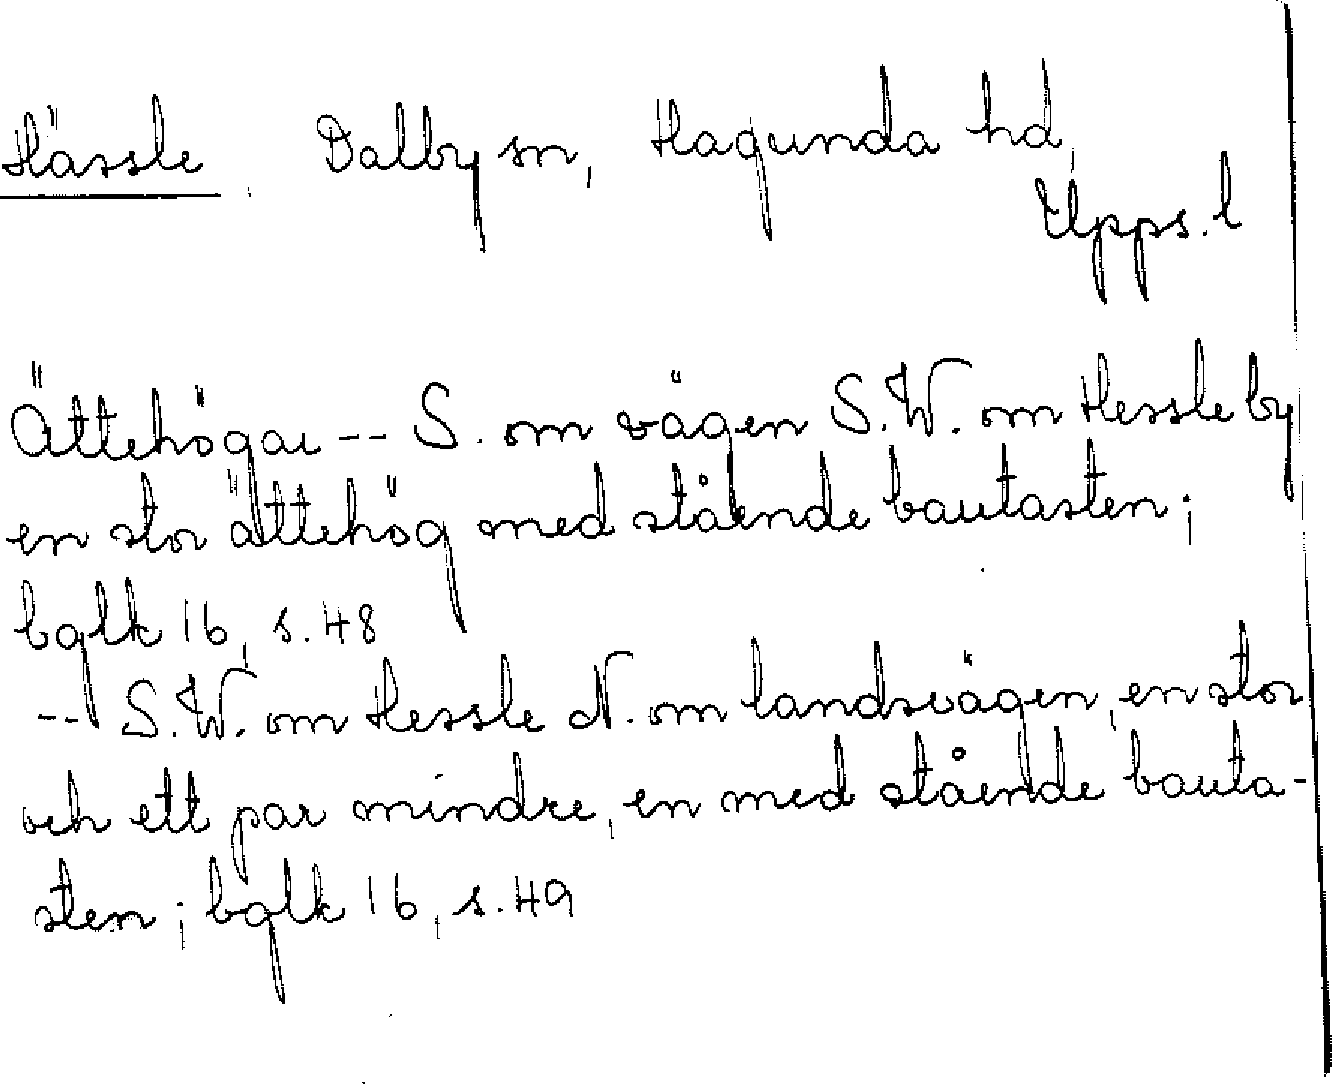 Hässle. Dalby sn, Hagunda hd,
Upps. l
Ättehögar -- S. om vägen S.W. om Hessle by
en stor ättehög med stående bautasten;
bglk 16, s. 48
-- S.W. om Hessle N. om landsvägen, en stor
och ett par mindre, en med stående bauta-
sten; bglk 16, s. 49